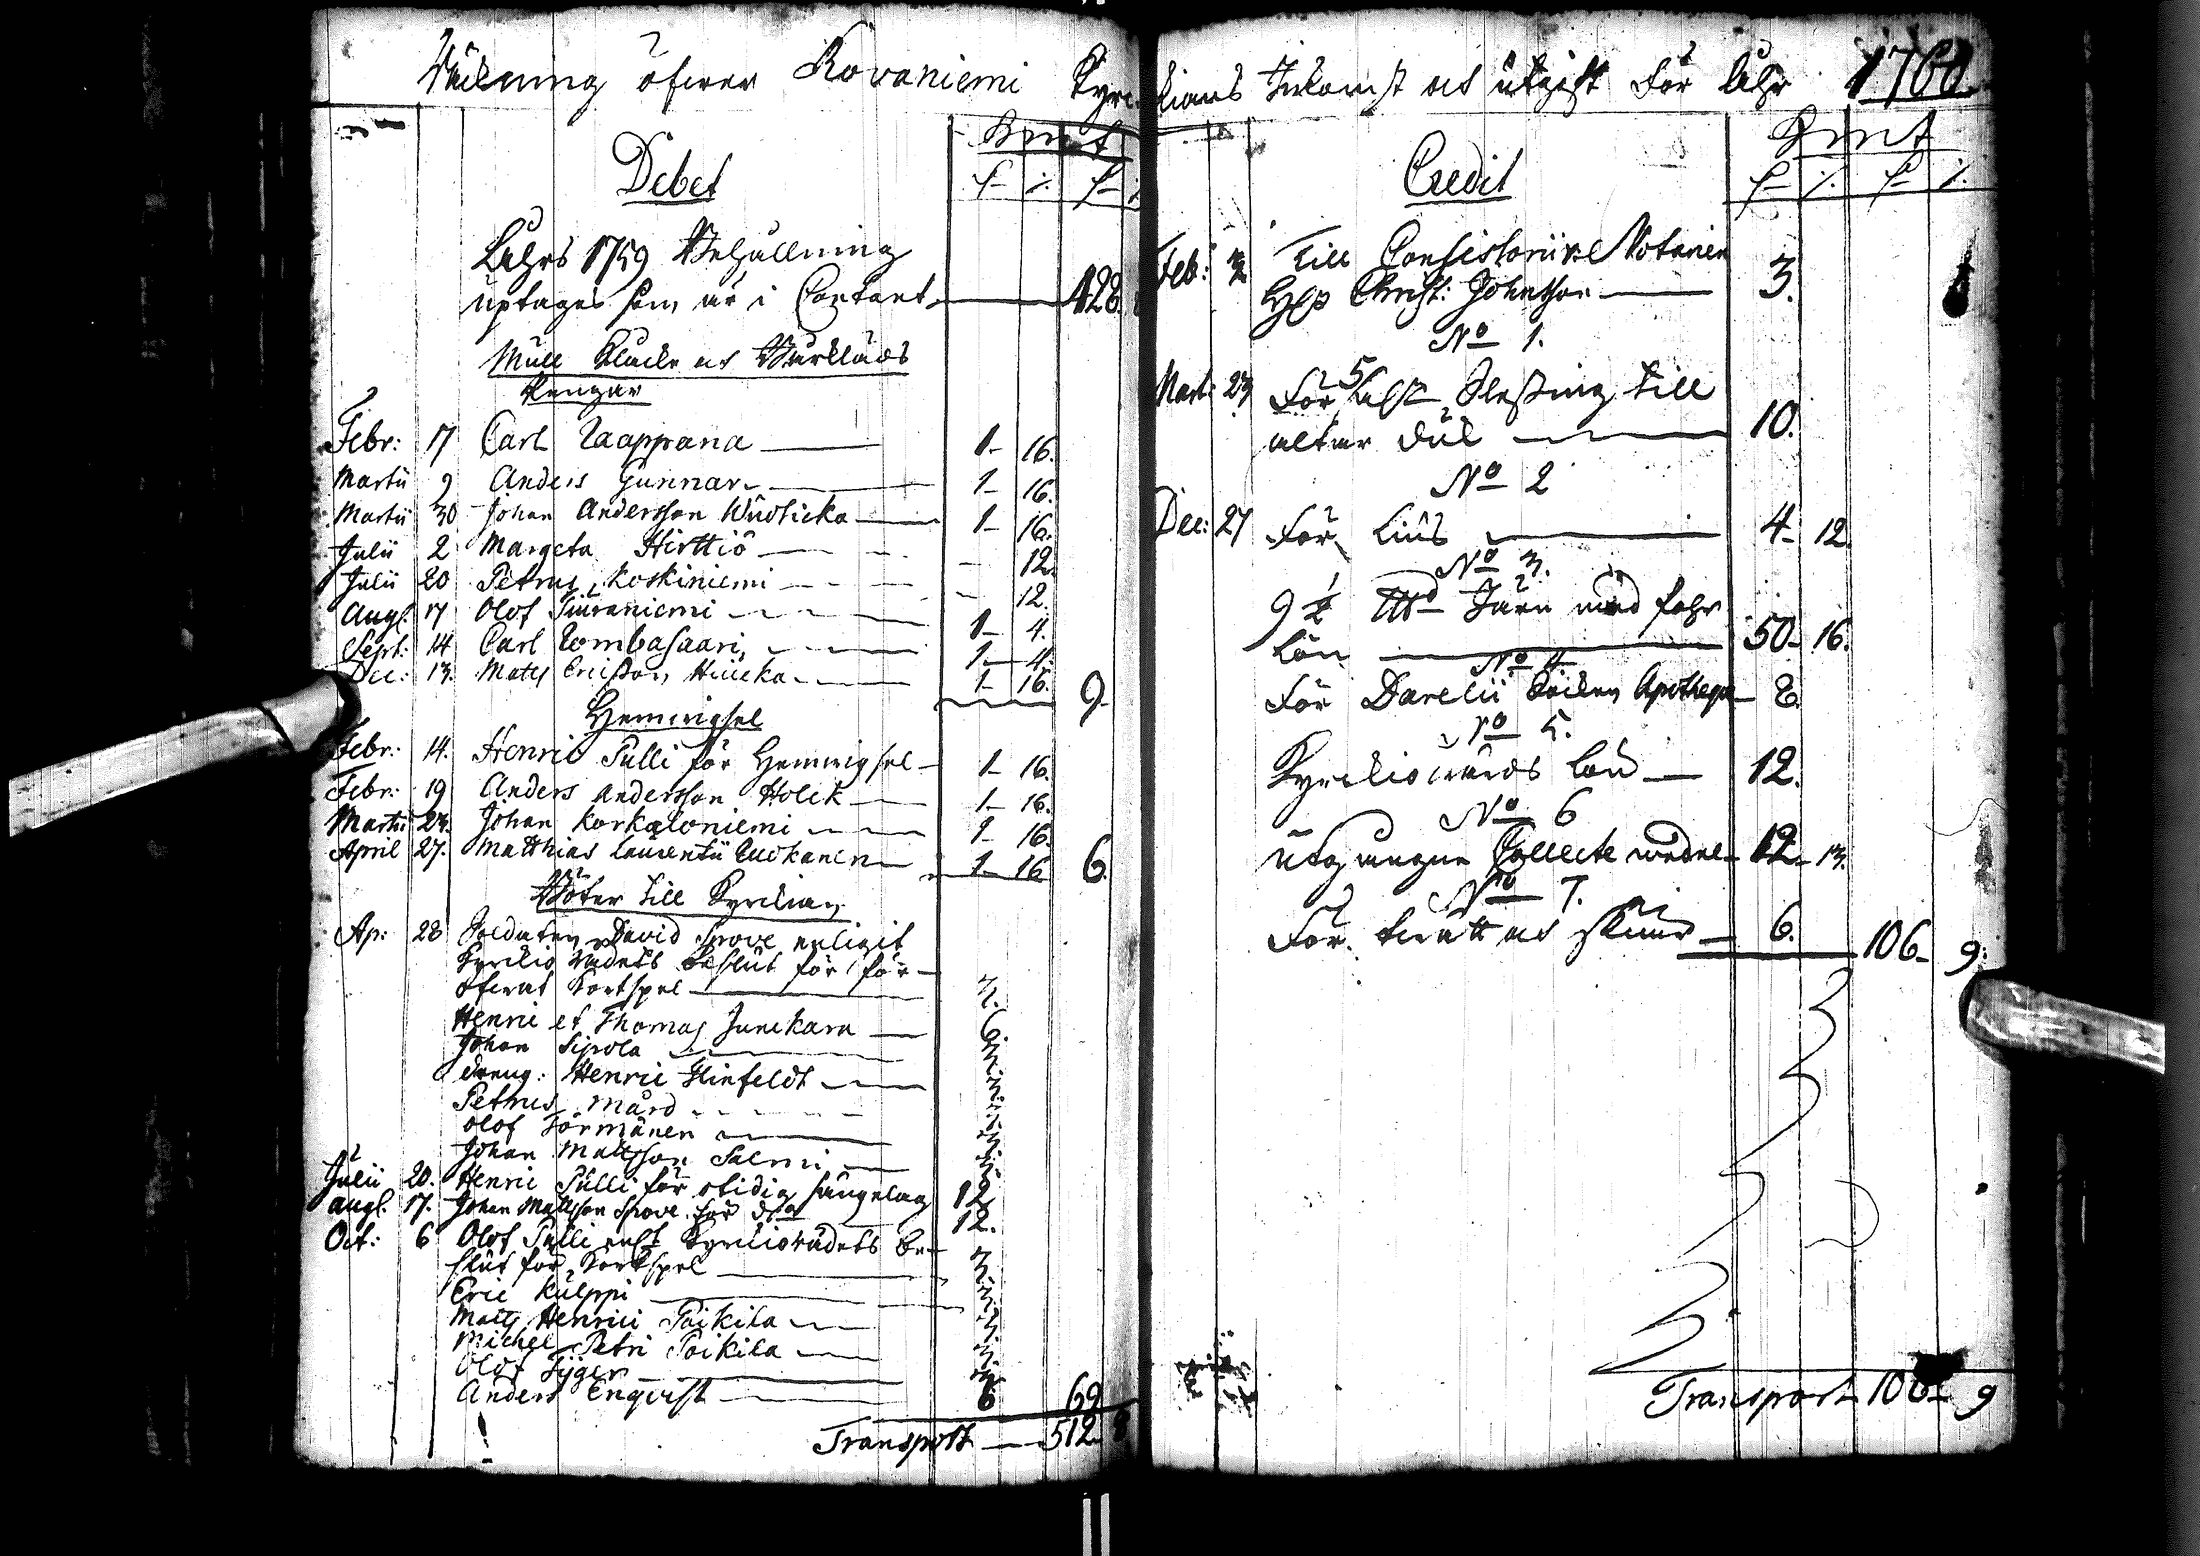 Räkning öfwer Rovaniemi Kyrckians Inkomst och utgift För Åhr 1760
Debet
Kmt
Åhrs 1759 Behållning
uptages som är i Contant — 428.
Mull Klocke och Bårkläds
Pengar
Febr: 17 Carl Taappana — 1- 16.
Martii 9 Anders Gunnar — 1- 16.
Martii 30 Johan Andersson Wuosticka — 1- 16.
Julii 2 Margeta Hirttiö — 12.
Julii 20 Petrus Koskiniemi — 12.
Aug: 17 Olof Siuraniemi — 1- 4.
Sept: 14 Carl Lombasaari — 1- 4.
Dec: 13. Mats Ericsson — 1- 16. 9-
Hemmigsel
Febr: 14. Henric Pulli för Hemmigsel — 1- 16.
Febr: 19 Anders Andersson Holck — 1- 16.
Martii 23. Johan Korkaloniemi — 1- 16.
April 27. Matthias Laurentii — 1- 16 6.
Böter till Kyrckian
Ap: 28 Soldaten David Spove enligit
Kyrckio Rådets Beslut för för-
öfwat Kortspel — 3.
Henric et Thomas Junckara — 6
Johan Sipola — 3.
dreng: Henric Hinfeldt — 3.
Petrus Mård — 3.
Olof Törmänen — 3.
Johan Mattsson Salmi — 3.
Julii 20. Henric Pulli för otidig sängelag 12
Aug: 17. Johan Mattsson Spove för dito 12.
Oct: 6 Olof Pulli enl:t Kyrckiorådets be-
slut för Kortspel — 3.
Eric Kulppi — 3.
Mats Henrici Poikila — 3.
Michel Petri Poikila — 3.
Olof Tyger — 3.
Anders Enqvist — 6 69
Transport — 512-
Credit
Kmt
Feb: Till Consistorii Notarien
Christ: Johnsson — 3.
No 1.
Mart: 23 För 5 till
altar duk — 10.
No 2
Dec: 27 För Lius — 4- 12
No 3.
9½ Järn med fohr
lön — 50- 16.
No 4
För Darelii Socken Apotheque — 8.
No 5.
Kyrckiowärds lön — 12.
No 6
utgångne Collecte medel — 12- 13.
No 7.
För — 6. 106- 9:
Transport — 106- 9